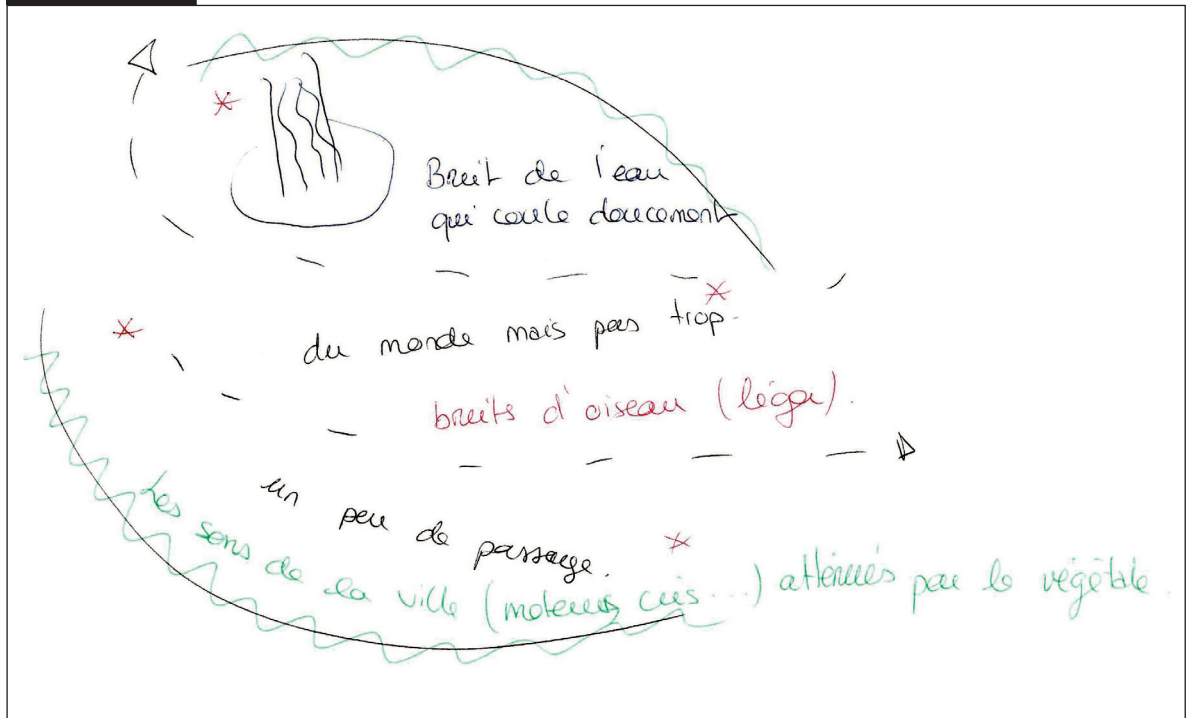 Bruit de l'eau
qui coule doucement
du monde mais pas trop.
bruits d'oiseau (léger).
un peu de passage.
Les sons de la ville (moteurs, cris...) atténués par le végétale.